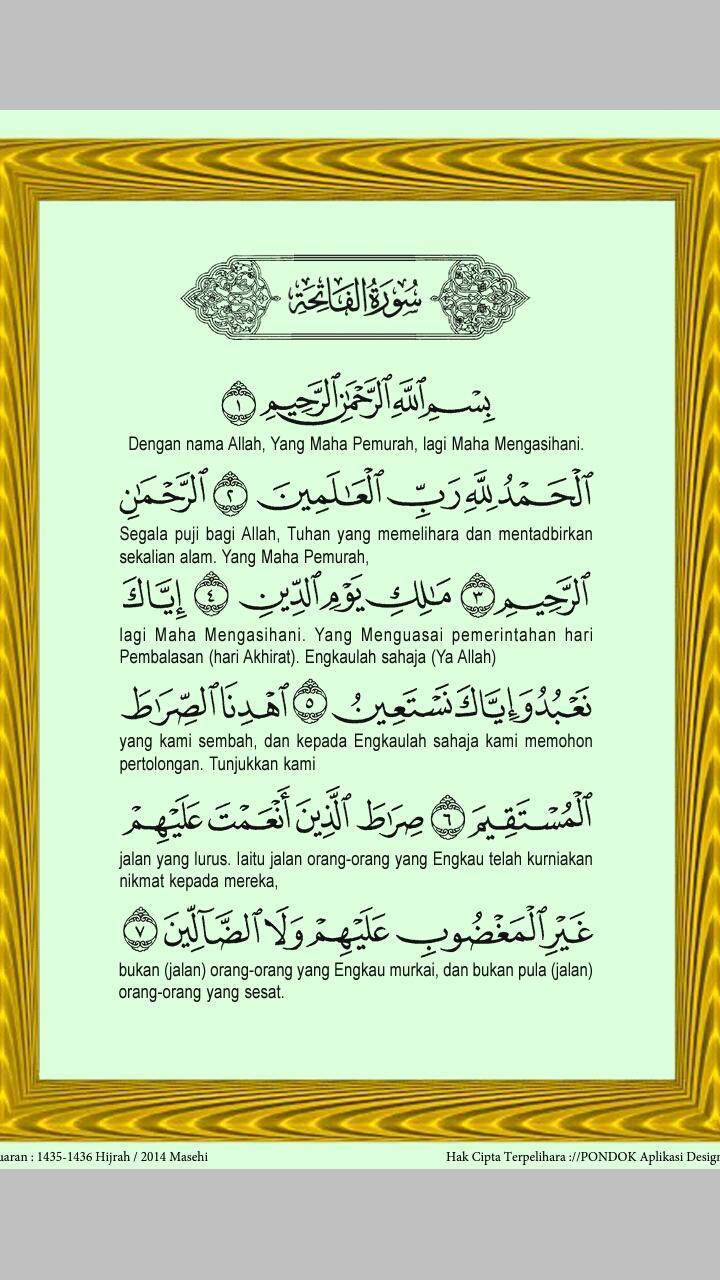 سُورَةُ الْفَاتِحَةِ
بِسْمِ ٱللَّهِ ٱلرَّحْمَٰنِ ٱلرَّحِيمِ ١
Dengan nama Allah, Yang Maha Pemurah, lagi Maha Mengasihani.
ٱلْحَمْدُ لِلَّهِ رَبِّ ٱلْعَٰلَمِينَ ٢ ٱلرَّحْمَٰنِ
Segala puji bagi Allah, Tuhan yang memelihara dan mentadbirkan
sekalian alam. Yang Maha Pemurah,
ٱلرَّحِيمِ ٣ مَٰلِكِ يَوْمِ ٱلدِّينِ ٤ إِيَّاكَ
lagi Maha Mengasihani. Yang Menguasai pemerintahan hari
Pembalasan (hari Akhirat). Engkaulah sahaja (Ya Allah)
نَعْبُدُ وَإِيَّاكَ نَسْتَعِينُ ٥ ٱهْدِنَا ٱلصِّرَٰطَ
yang kami sembah, dan kepada Engkaulah sahaja kami memohon
pertolongan. Tunjukkan kami
ٱلْمُسْتَقِيمَ ٦ صِرَٰطَ ٱلَّذِينَ أَنْعَمْتَ عَلَيْهِمْ
jalan yang lurus. Iaitu jalan orang-orang yang Engkau telah kurniakan
nikmat kepada mereka,
غَيْرِ ٱلْمَغْضُوبِ عَلَيْهِمْ وَلَا ٱلضَّآلِّينَ ٧
bukan (jalan) orang-orang yang Engkau murkai, dan bukan pula (jalan)
orang-orang yang sesat.
uaran : 1435-1436 Hijrah / 2014 Masehi
Hak Cipta Terpelihara ://PONDOK Aplikasi Design